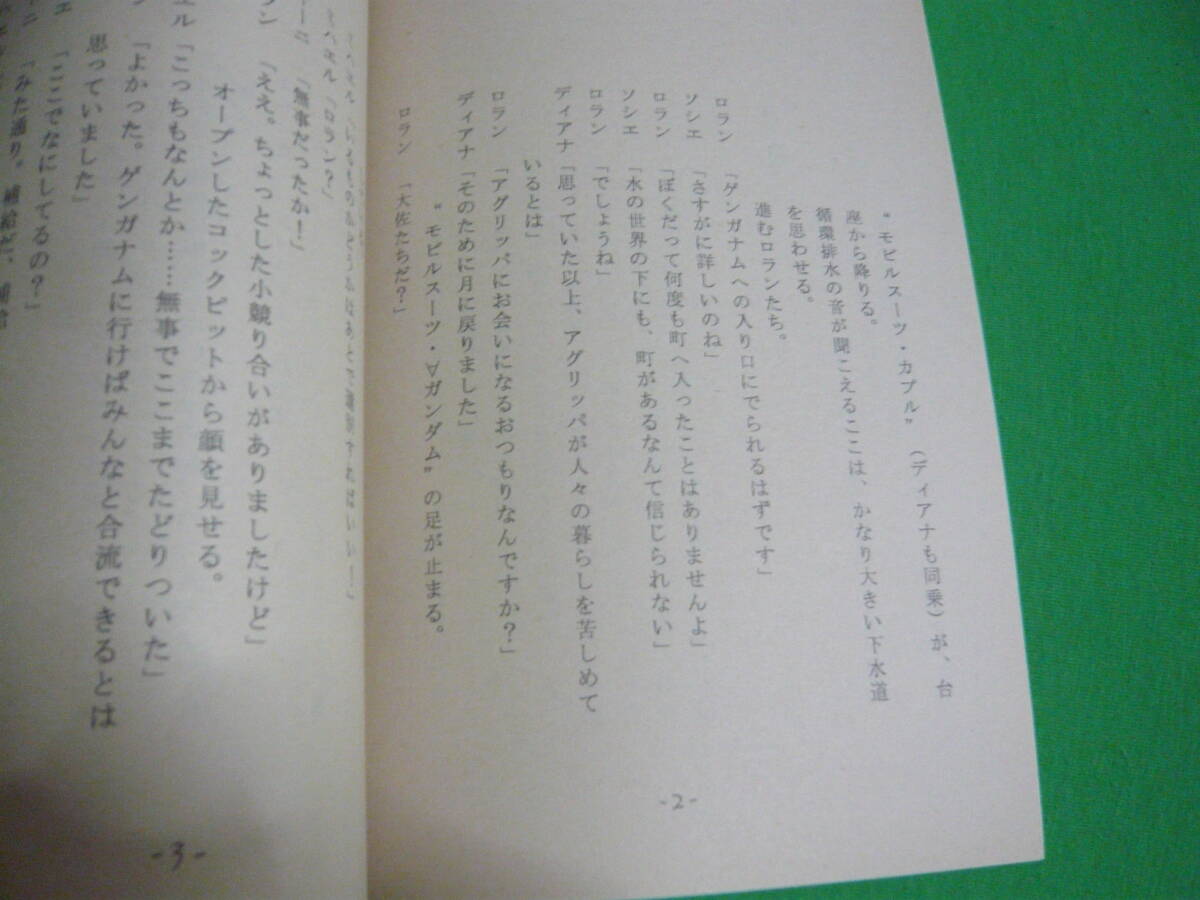 “モビルスーツ・カプル”(ディアナも同乗)が、台
座から降りる。
循環排水の音が聞こえるここは、かなり大きい下水道
を思わせる。
進むロランたち。
ロラン「ゲンガナムへの入り口にでられるはずです」
ソシエ「さすがに詳しいのね」
ロラン「ぼくだって何度も町へ入ったことはありませんよ」
ソシエ「水の世界の下にも、町があるなんて信じられない」
ロラン「でしょうね」
ディアナ「思っていた以上、アグリッパが人々の暮らしを苦しめて
いるとは」
ロラン「アグリッパにお会いになるおつもりなんですか?」
ディアナ「そのために月に戻りました」
“モビルスーツ・∀ガンダム”の足が止まる。
ロラン「大佐たちだ?」
-2-
「ロラン?」
「無事だったか!」
ラン「ええ。ちょっとした小競り合いがありましたけど」
オープンしたコックピットから顔を見せる。
エル「こっちもなんとか……無事でここまでたどりついた」
ン「よかった。ゲンガナムに行けばみんなと合流できるとは
思っていました」
エ「ここでなにしてるの?」
ニ「みた通り。補給だ、補給
-3-